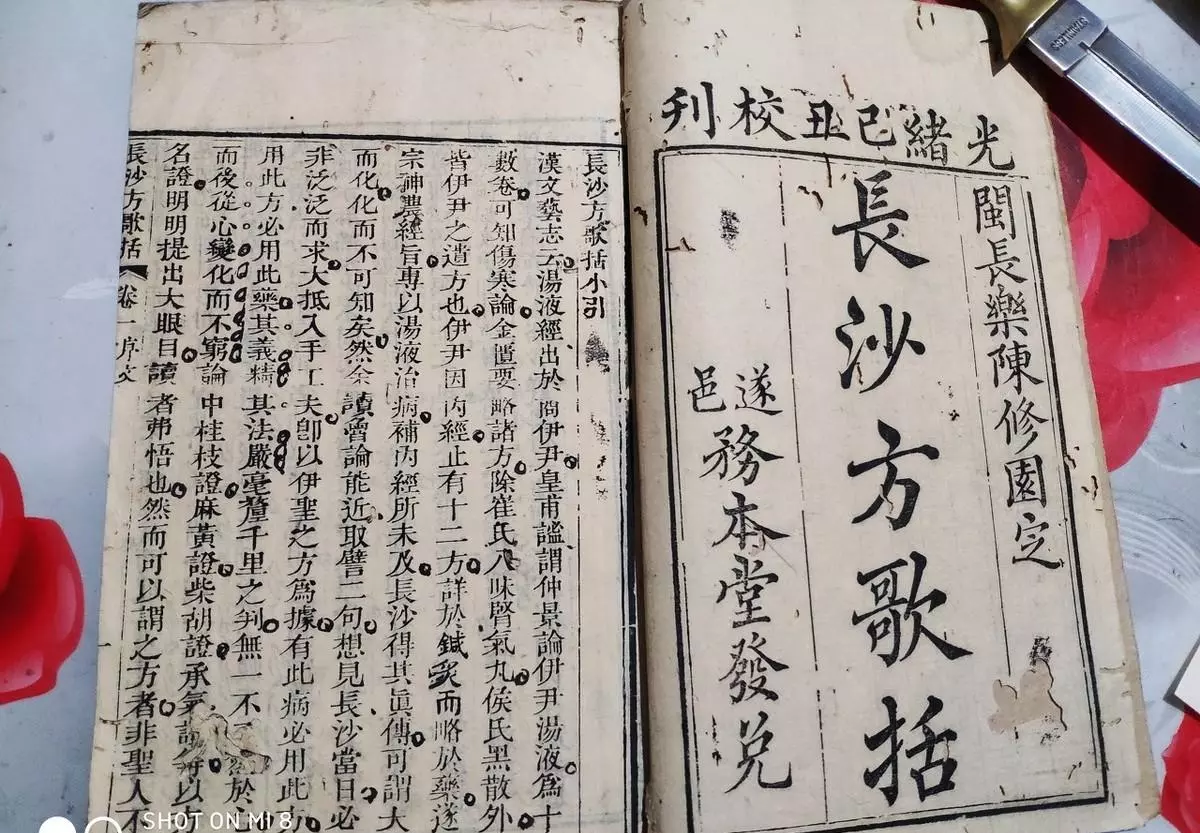 光緒己丑校刊
閩長樂陳修園定
長沙方歌括
遂邑
務本堂發兌
長沙方歌括小引
漢文藝志云湯液經出於商伊尹皇甫謐謂仲景論伊尹湯液爲十
數卷可知傷寒論金匱要略諸方除崔氏八味腎氣丸侯氏黑散外
皆伊尹之遺方也伊尹因內經止有十二方詳於鍼灸而略於藥遂
宗神農經旨專以湯液治病補內經所未及長沙得其眞傳可謂大
而化化而不可知矣然余讀魯論能近取譬二句想見長沙當日必
非泛泛而求大抵入手工夫卽以伊聖之方爲據有此病必用此方
用此方必用此藥其義精其法嚴毫釐千里之判無一不於
而後從心變化而不窮論中桂枝證麻黃證柴胡證承氣以
名證明明提出大眼目讀者弗悟也然而可以謂之方者非聖人不
長沙方歌括 卷一序文
SHOT ON MI 8